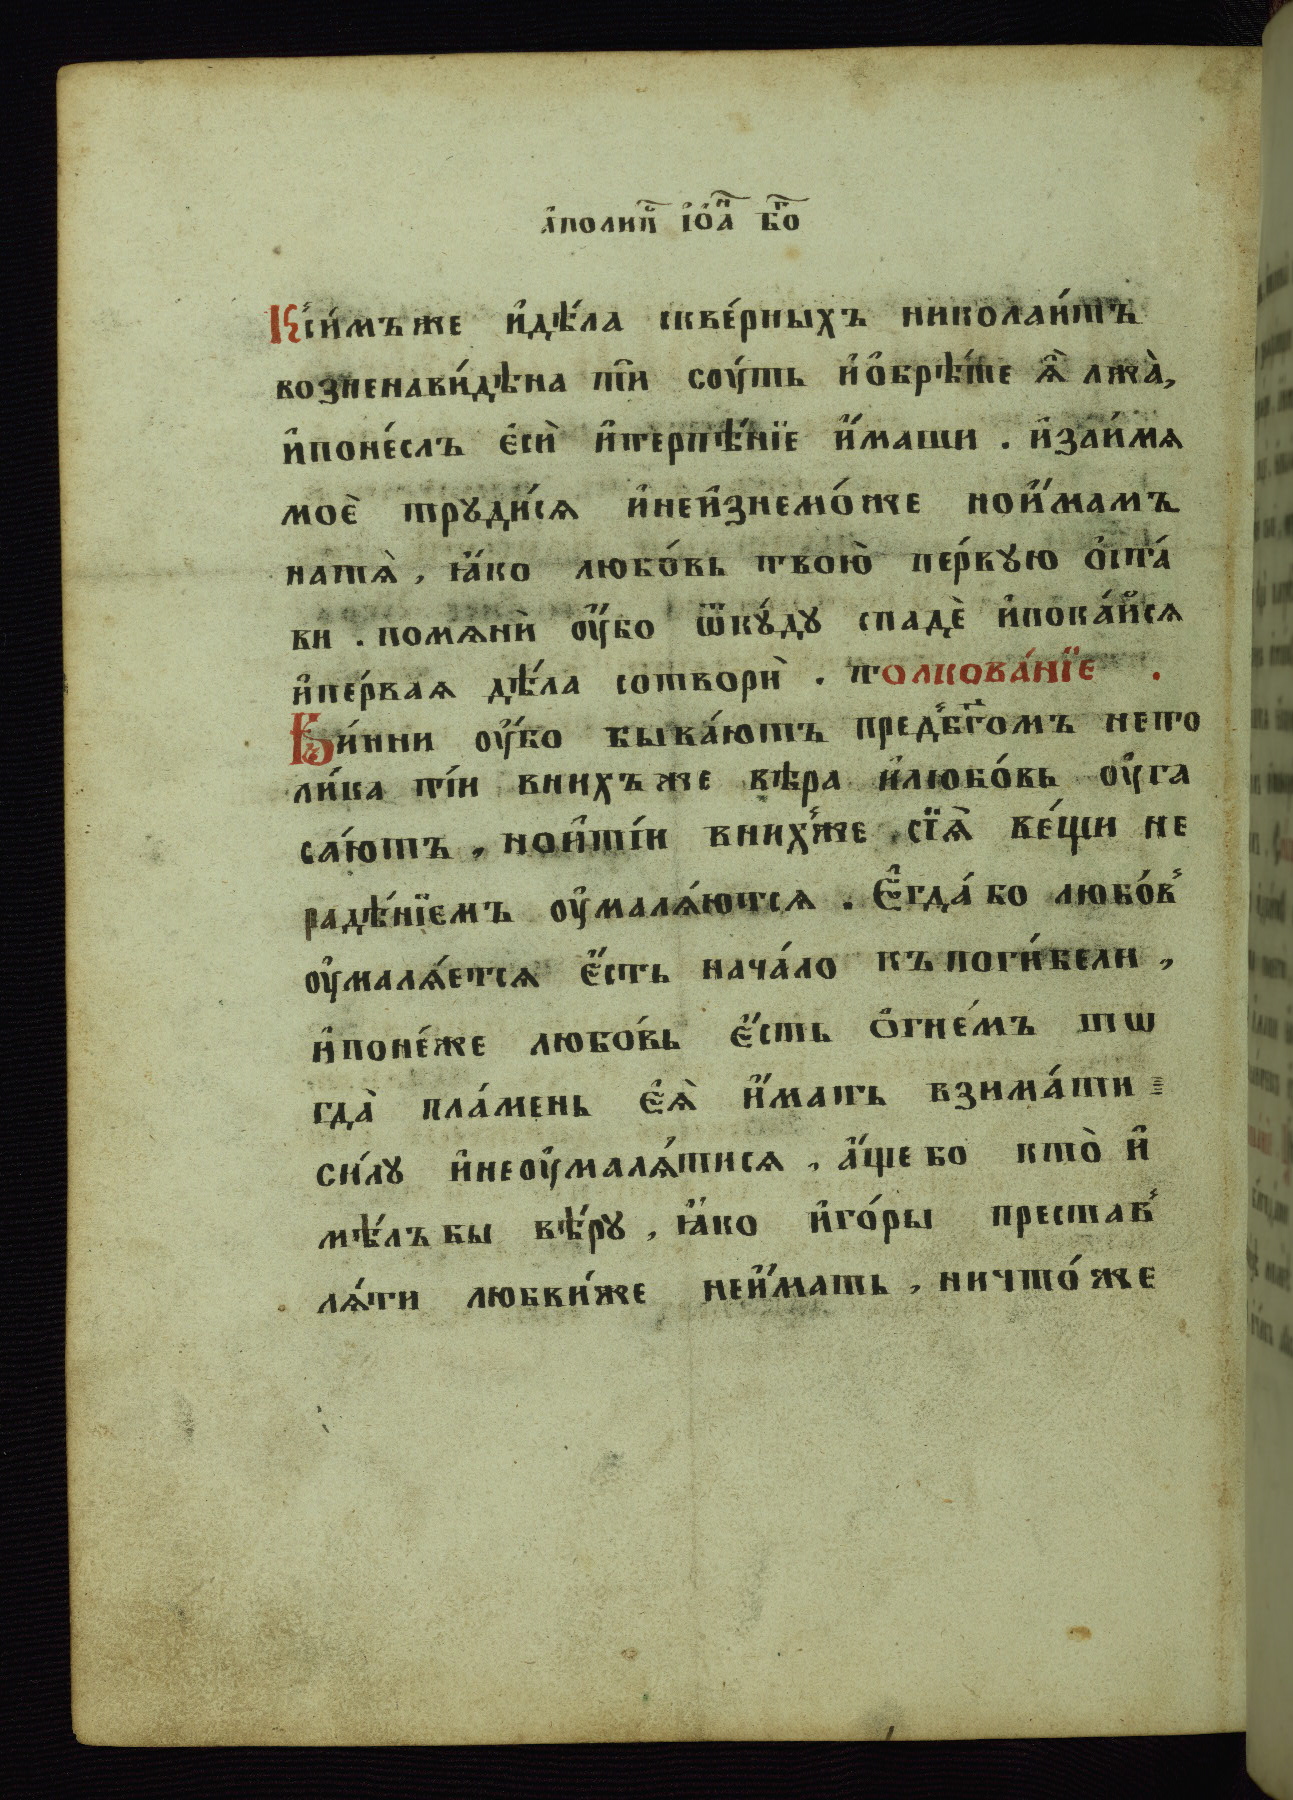 а҆поли́п҇ І҆ѡ҆а҇ бг҇о
Кси́мъже и҆дѣ́ла скве́рныхъ николаи́тъ
возненави́дѣна ти̑и соу́ть и҆ѻ҆брѣ́те ꙗ҆̀ лжа̀,
и҆поне́слъ є҆сѝ и҆терпѣ́нїе и҆́маши . и҆заи́мѧ
моѐ труди́сѧ и҆неи҆знемо́же нои҆́мамъ
натѧ̀ , ꙗ҆́ко любо́вь твою̀ пе́рвую ѻ҆ста́
ви . помѧнѝ оу҆́бо ѿкꙋ́ду спадѐ и҆пока́йсѧ
и҆пе́рваꙗ дѣ́ла сотворѝ . толкова́нїе .
Ви́нни оу҆́бо быва́ютъ предбг҃омъ нето
ли́ка ті́и внихъже вѣра и҆любо́вь оу҆га
са́ютъ , нои҆ті́и вних̾же сїѧ̀ ве́щи не
радѣ́нїемъ оу҆малѧ́ютсѧ . Є҆гда́ бо любо́в̾
оу҆малѧ́етсѧ є҆́сть нача́ло къ поги́бели ,
и҆поне́же любо́вь є҆́сть ѻ҆гне́мъ тѡ
гда̀ пла́мень є҆ѧ̀ и҆́мать взима́ти
си́лу и҆неоу҆малѧ́тисѧ , а҆́ще бо кто̀ и҆
мѣ́лъ бы вѣ́ру , ꙗ҆́ко и҆го́ры престав̾
лѧ́ти любви́же неи҆́мать , ничто́же